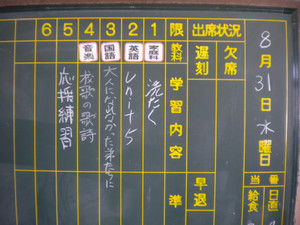 8月31日水曜日
日直
番
給食
当
出席状況
欠席
遅刻
早退
限 教科 学習内容 準
1 家庭科 洗たく
2 英語 Unit5
3 国語 大人になれなかった弟たちに
4 音楽 校歌の歌詩
5 応援練習
6